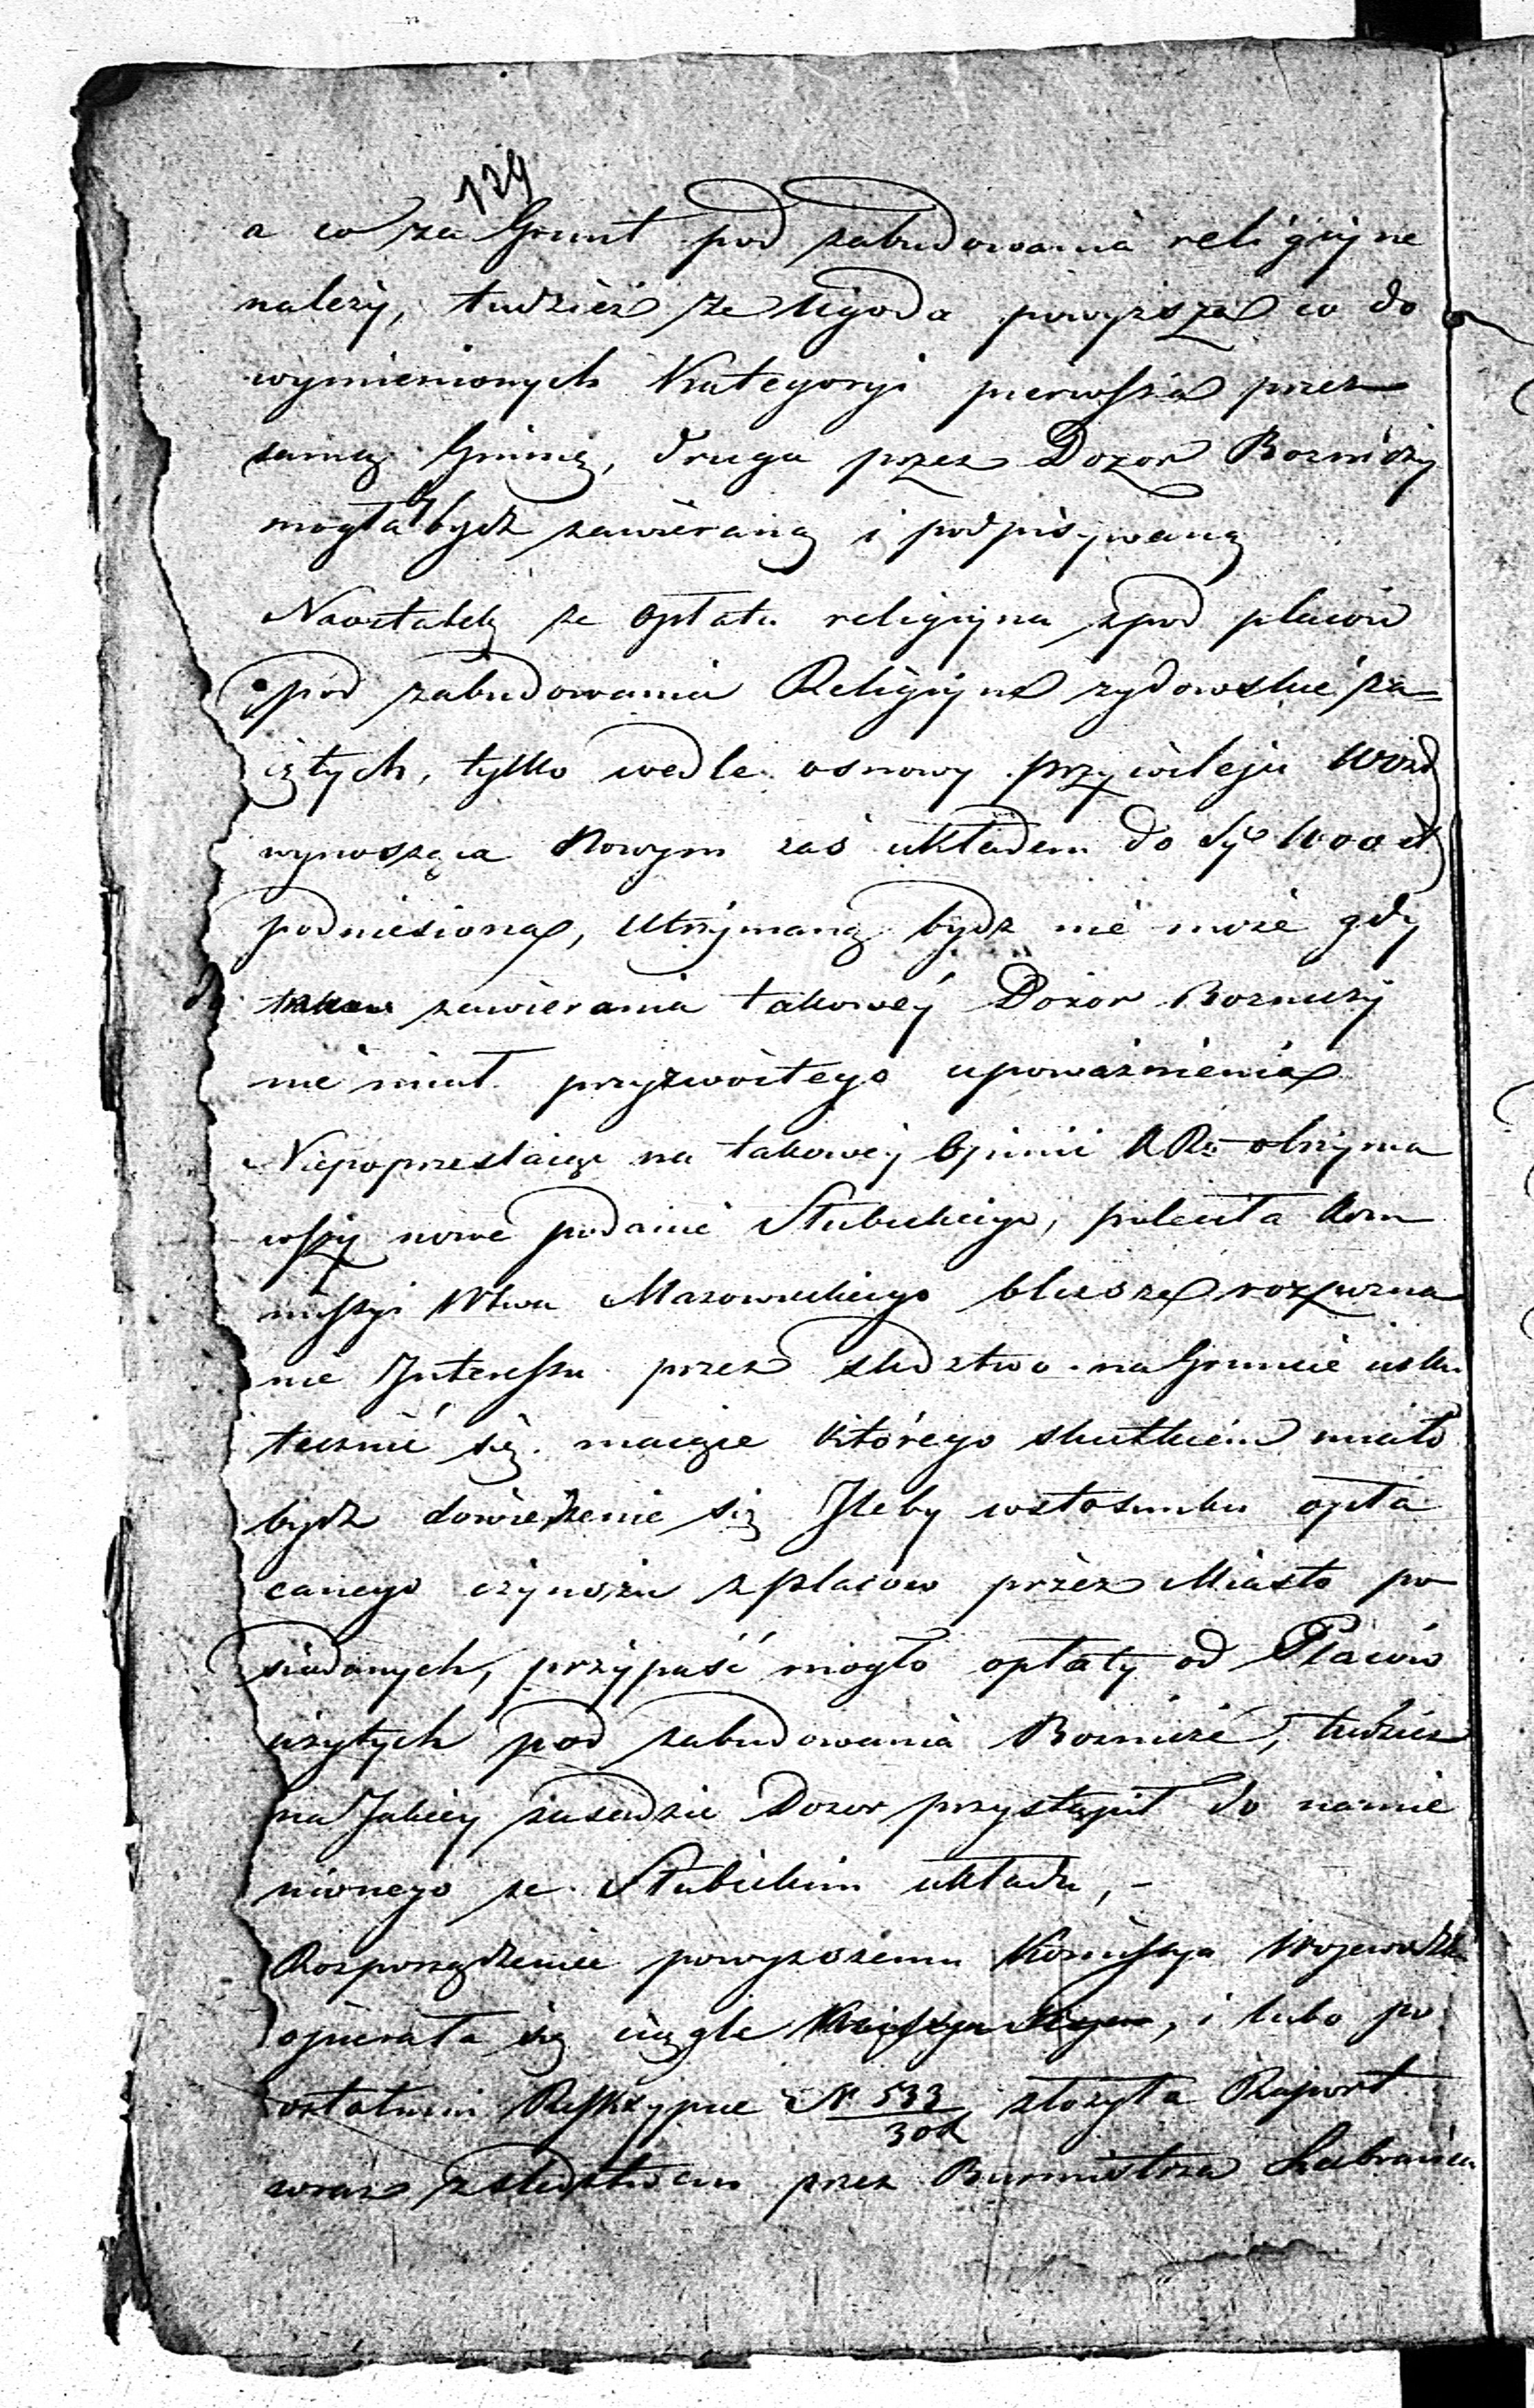 139
a co za Grunt pod zabudowania religijne
należy, tudzież że Ugoda powyższa co do
wymienionych Kategoryi pierwsza przez
samą Gminę, druga przez Dozor Bozniczy
mogłaby bydz zawieraną i podpisywaną
Naostatek że opłata religijna zpod placow
pod zabudowania Religijne zydowskie za=
iętych, tylko wedle osnowy przywileju
wynosząca Nowym zaś układem do 1000 zł
podniesiona, utrzymaną bydz nie może gdy
do zawierania takowéy Dozor Bozniczy
nie miał przyzwoitego upoważnienia
Niepoprzestaiąc na takowéj Opinii KRz otrzyma
wszy nowe podanie Słubickiego, poleciła Kom
missyi Wtwa Mazowieckiego bliższe rozpozna
nie Interessu przez śledztwo na Gruncie usku
tecznić się maiące którego skutkiem miało
bydz dowiedzenie się Ileby wstosunku opła
canego czynszu z placow przez Miasto po
siadanych, przypaść mogło opłaty od Placów
użytych pod zabudowania Boznicze, tudzież
na Jakiey zasadzie Dozor przystąpił do namie
nionego ze Słubickim układu, -
Rozporządzeniu powyższemu Kommissya Wojewodzka
opierała się ciągle, i lubo po
ostatnim Reskrypcie N 533/302 złożyła Raport
wraz z śledztwem przez Burmistrza Lubrańca